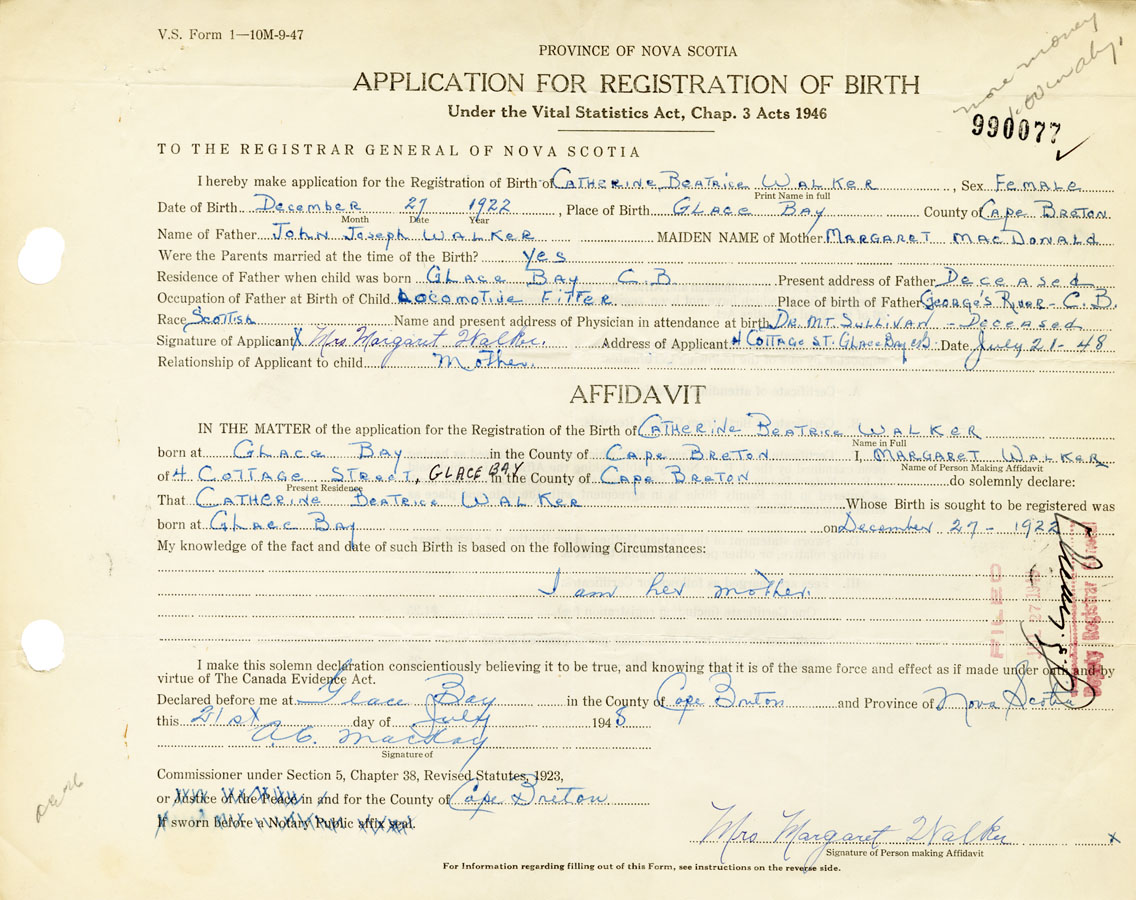 V.S. Form 1—10M-9-47
more money
PROVINCE OF NOVA SCOTIA
APPLICATION FOR REGISTRATION OF BIRTH
Under the Vital Statistics Act, Chap. 3 Acts 1946
990077
TO THE REGISTRAR GENERAL OF NOVA SCOTIA
I hereby make application for the Registration of Birth of CATHERINE BEATRICE WALKER, Sex FEMALE
Print Name in full
Date of Birth December 27 1922, Place of Birth GLACE BAY County of CAPE BRETON
Month Date Year
Name of Father JOHN JOSEPH WALKER MAIDEN NAME of Mother MARGARET MACDONALD
Were the Parents married at the time of the Birth? yes
Residence of Father when child was born GLACE BAY C.B Present address of Father DECEASED
Occupation of Father at Birth of Child LOCOMOTIVE FITTER Place of birth of Father GEORGE'S RIVER - C.B.
Race SCOTTISH Name and present address of Physician in attendance at birth DR. MT. SULLIVAN - DECEASED
Signature of Applicant X Mrs Margaret Walker. Address of Applicant 4 COTTAGE ST. GLACE BAY CB. Date July 21-48
Relationship of Applicant to child Mother.
AFFIDAVIT
IN THE MATTER of the application for the Registration of the Birth of CATHERINE BEATRICE WALKER
Name in Full
born at GLACE BAY in the County of CAPE BRETON I, MARGARET WALKER
Name of Person Making Affidavit
of 4 COTTAGE STREET, GLACE BAY in the County of CAPE BRETON do solemnly declare:
Present Residence
That CATHERINE BEATRICE WALKER Whose Birth is sought to be registered was
born at GLACE BAY on December 27-1922
My knowledge of the fact and date of such Birth is based on the following Circumstances:
I am her mother.
FILED
Deputy Registrar General
I make this solemn declaration conscientiously believing it to be true, and knowing that it is of the same force and effect as if made under oath and by
virtue of The Canada Evidence Act.
Declared before me at Glace Bay in the County of Cape Breton and Province of Nova Scotia
this 21st day of July 1948
A.C. MacKay
Signature of
Commissioner under Section 5, Chapter 38, Revised Statutes, 1923,
or Justice of the Peace in and for the County of Cape Breton
If sworn before a Notary Public affix seal.
Mrs Margaret Walker x
Signature of Person making Affidavit
For Information regarding filling out of this Form, see instructions on the reverse side.